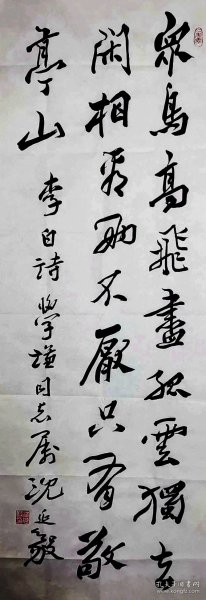 眾鳥高飛盡孤雲獨去
閑相看兩不厭只有敬
亭山 李白詩 學謙同志屬 沈延毅